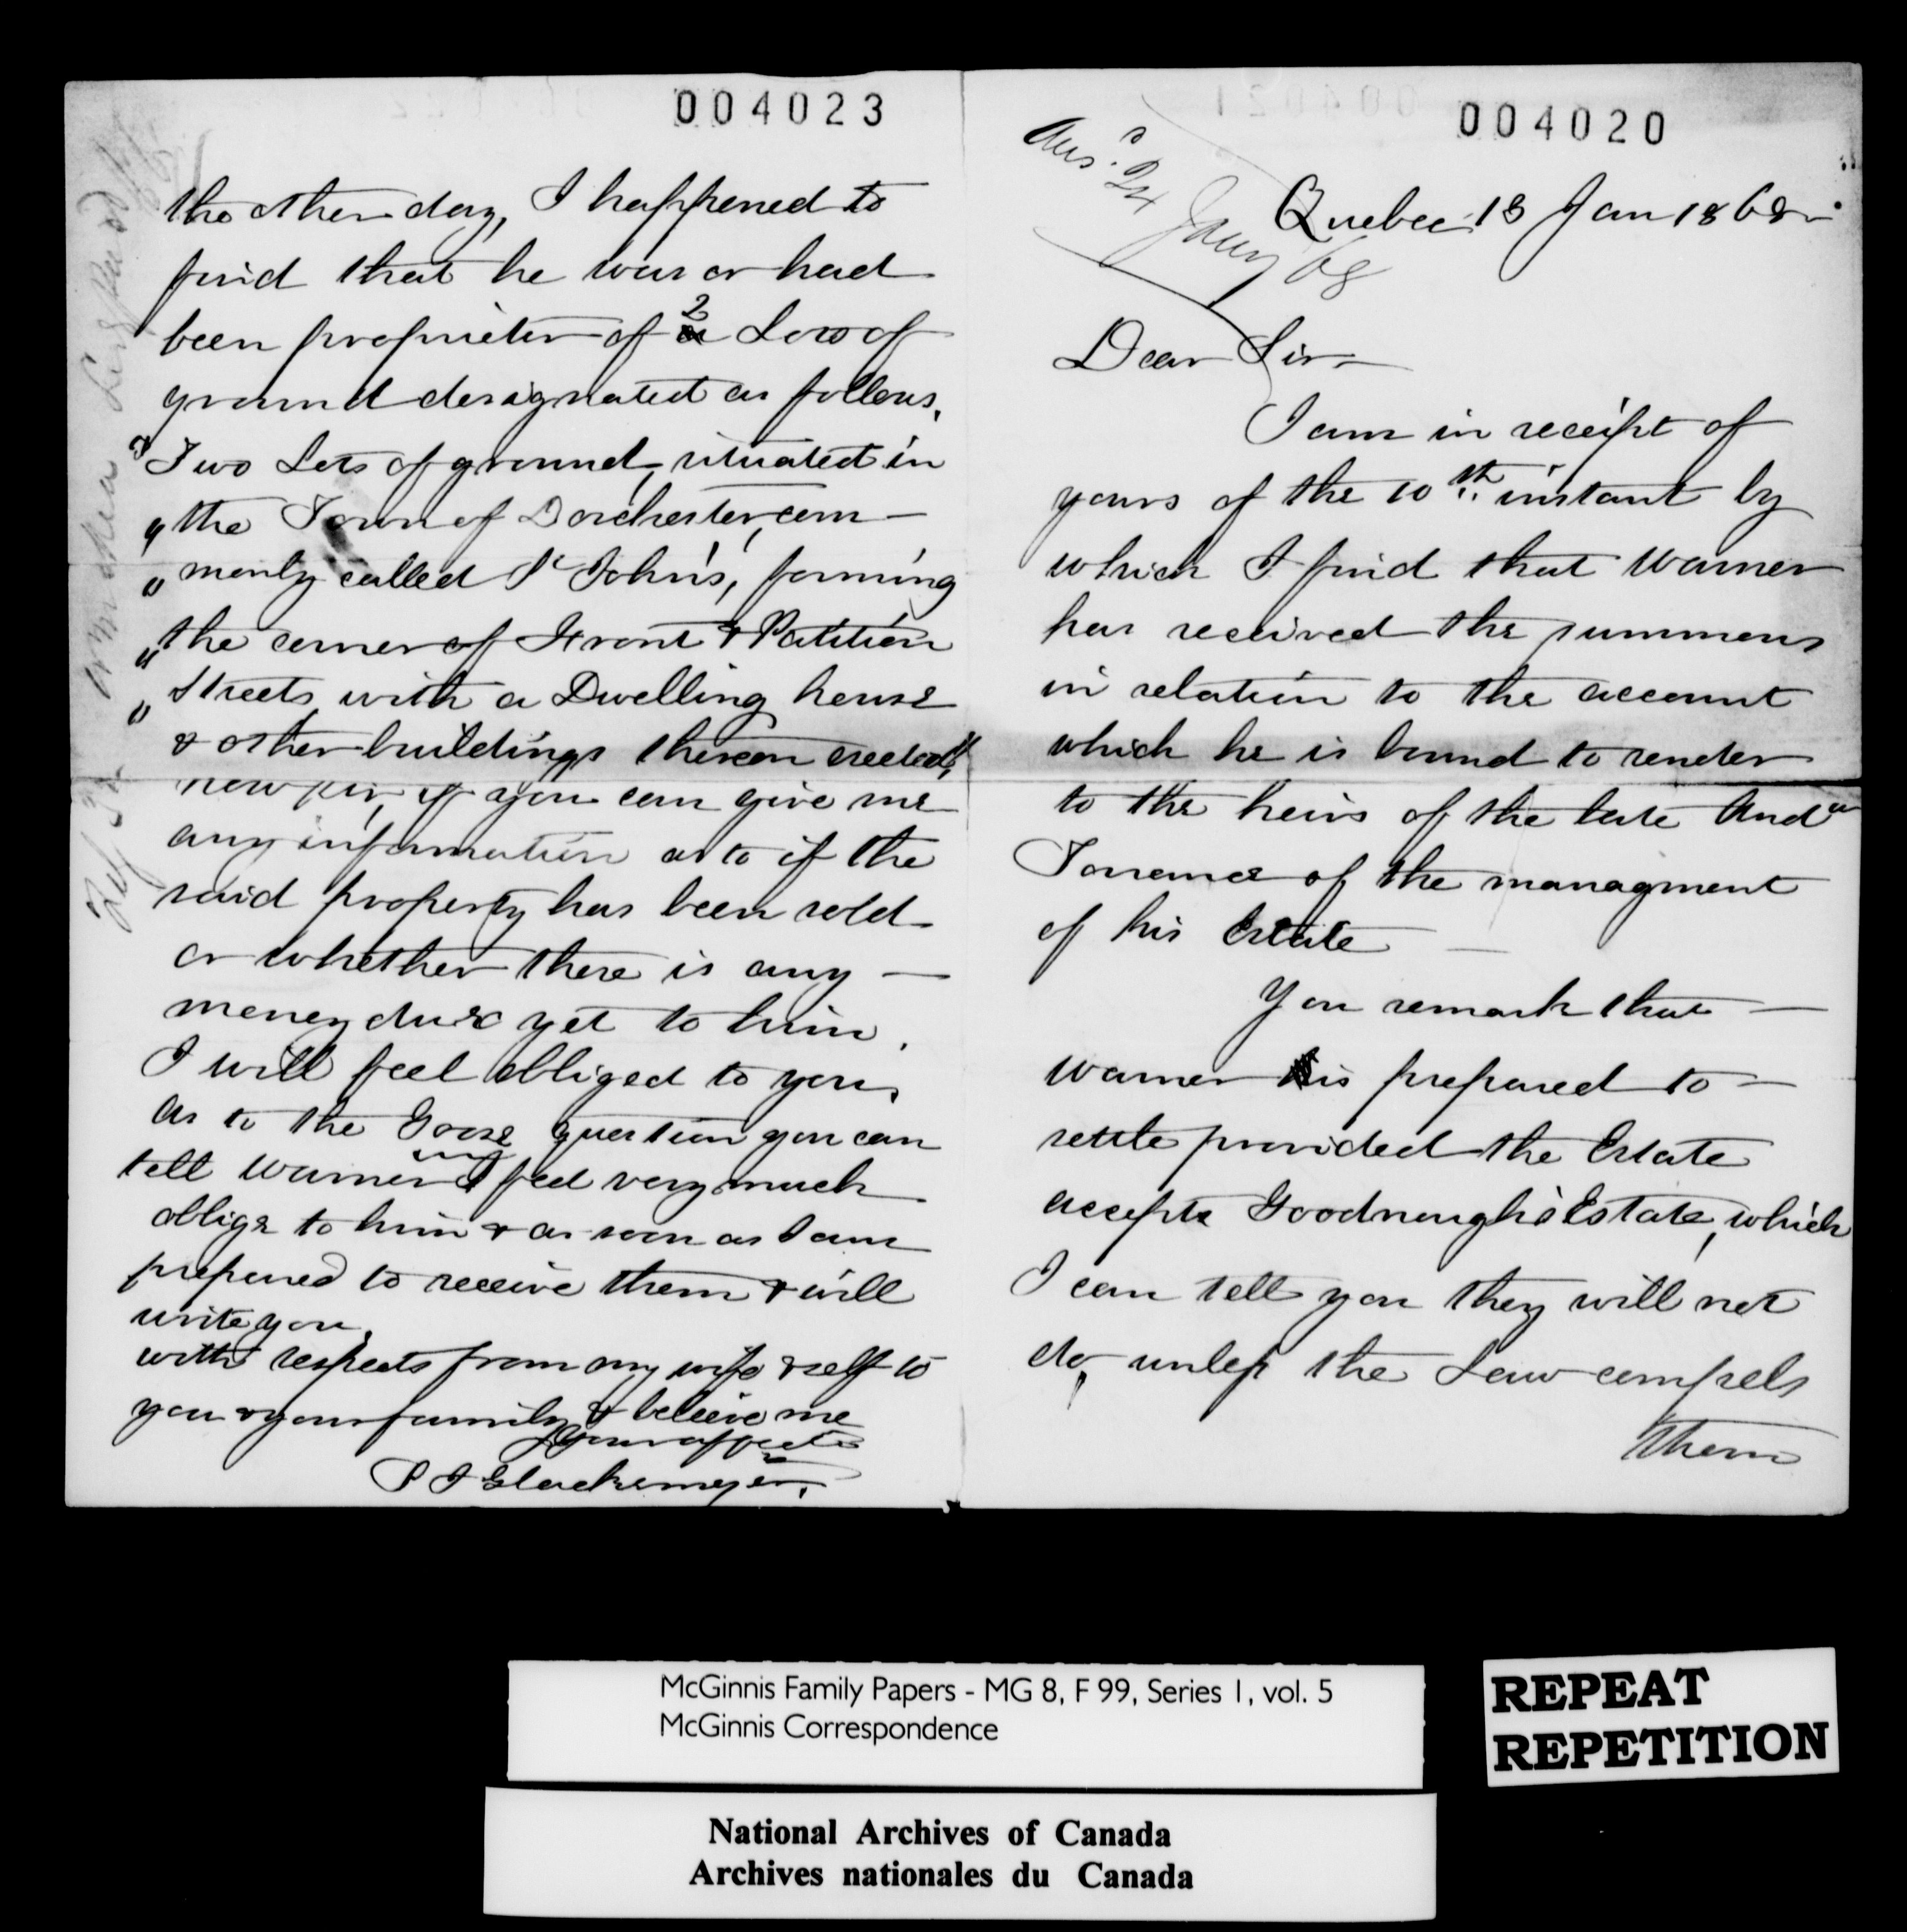 004023
the other day, I happened to
find that he was or had
been proprietor of 2 Lots of
ground designated as follows,
"Two Lots of ground, situated in
" the Town of Dorchester, com-
" monly called St Johns, forming
" the corner of Front & Partition
" Streets, with a Dwelling house
& other buildings thereon erected"
now sir, if you can give me
any information as to if the
said property has been sold
or whether there is any —
money due yet to him.
I will feel obliged to you,
as to the Goose question you can
tell Warner I feel very much
oblige to him & as soon as I am
prepared to receive them I will
write you,
with respects from my wife & self to
you & your family & believe me
your affecte
P I Glackemeyer,
004020
Ans. 24 Jany 68
Quebec 13 Jan 1868
Dear Sir
I am in receipt of
yours of the 10th instant by
which I find that Warner
has received the summons
in relation to the account
which he is bound to render
to the heirs of the late Andw
Torrance of the managment
of his Estate —
You remark that —
Warner is prepared to —
settle provided the Estate
accepts Goodnough's Estate, which
I can tell you they will not
do, unless the Law compels
them
McGinnis Family Papers - MG 8, F 99, Series 1, vol. 5
McGinnis Correspondence
REPEAT
REPETITION
National Archives of Canada
Archives nationales du Canada